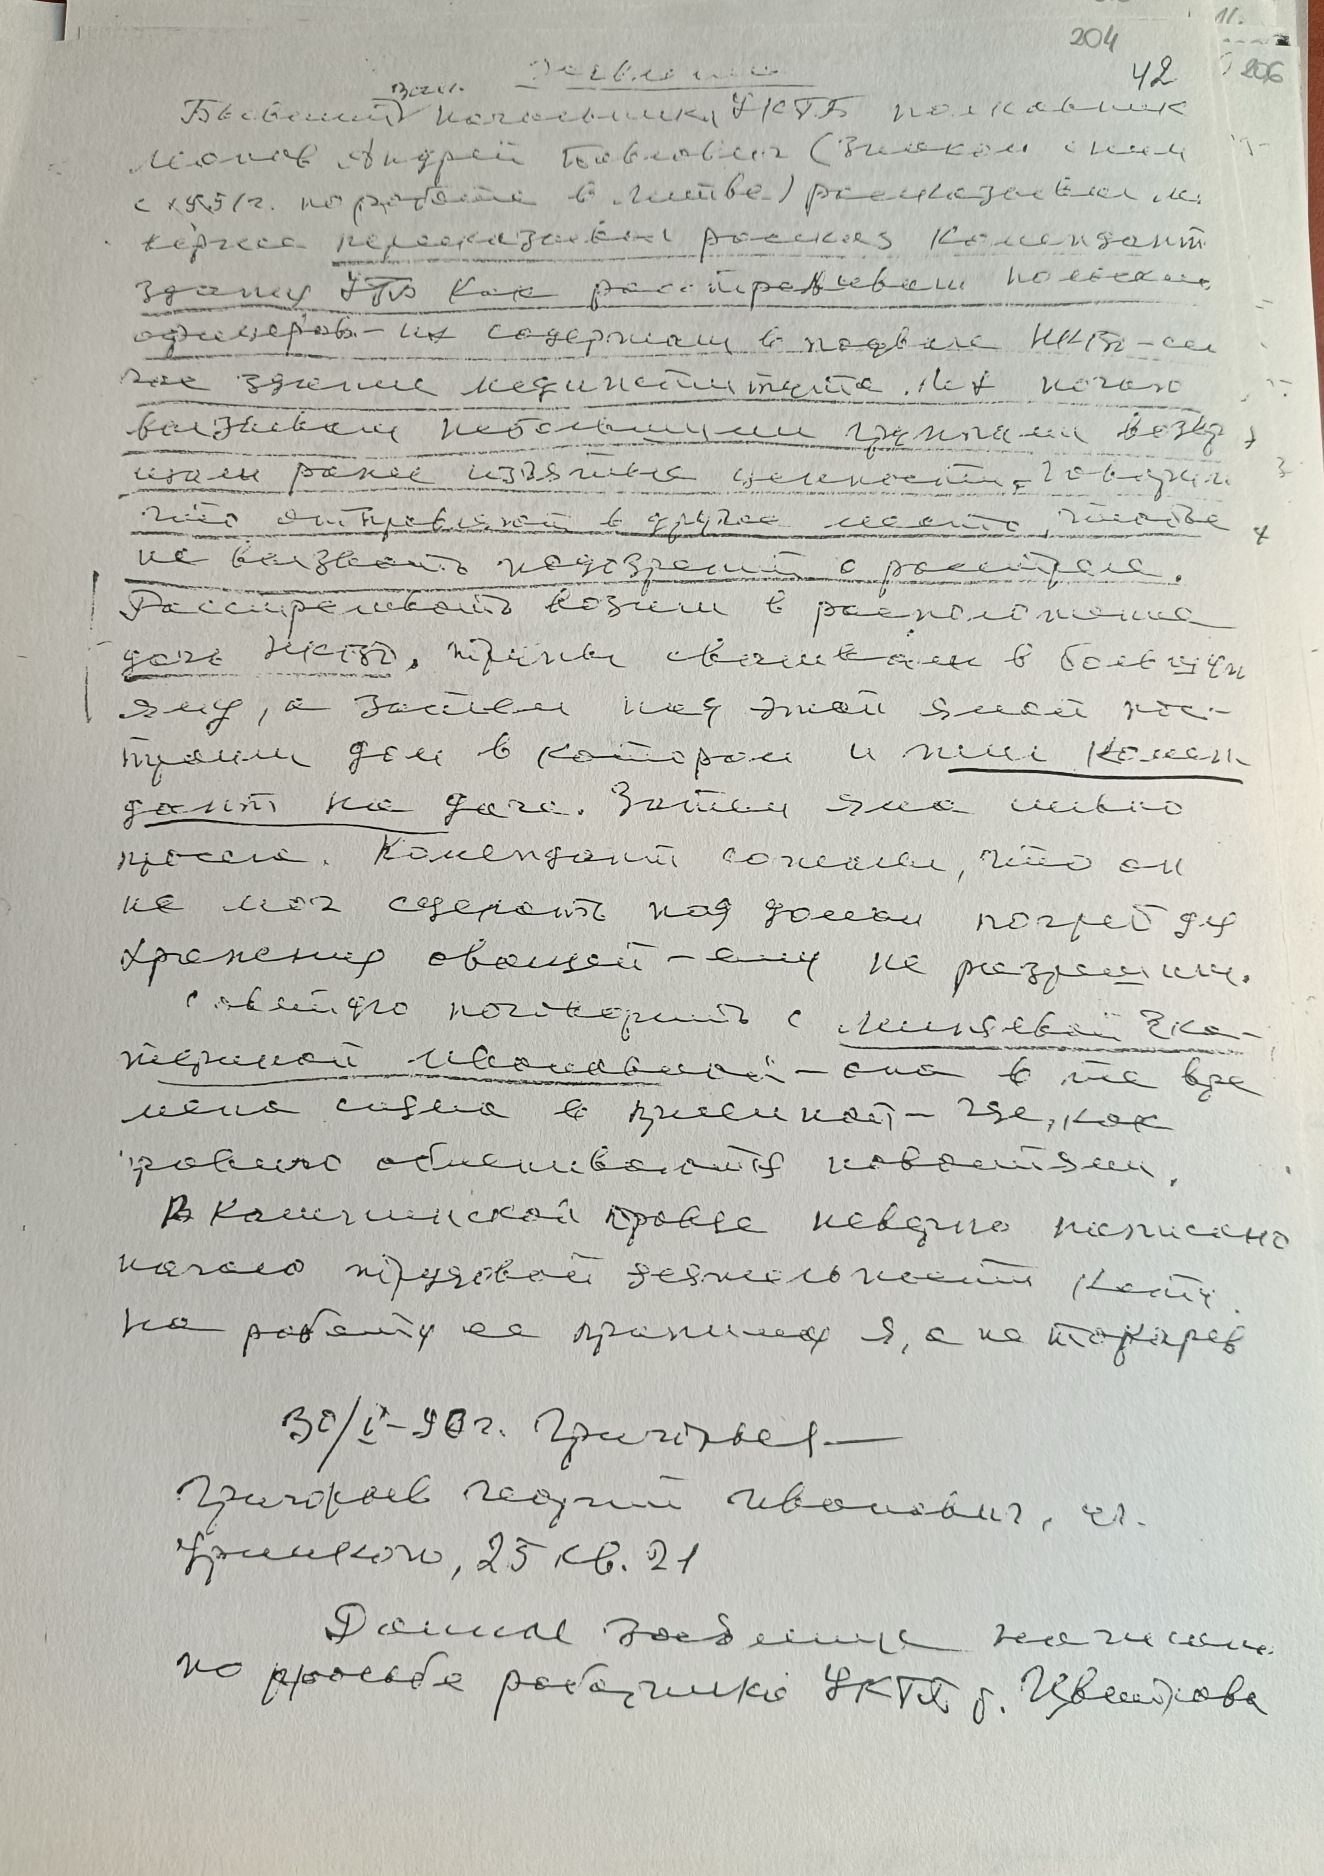 204
42
206
Заявление
зам.
Бывший начальника УКГБ полковник
Андрей Павлович (знаком с ним
с 1951г. по работе в Литве) рассказывал
пересказывал рассказ коменданта
здания УГБ как расстреливали польских
офицеров - их содержали в подвале НКВД - сей
час здание мединститута. Их ночью
вызывали небольшими группами возвр
щали ранее изъятые ценности, говорили
что отправляют в другое место, чтобы
не вызвать подозрений о расстреле.
Расстреливать возили в расположение
дачи НКВД, трупы сваливали в большую
яму, а затем над этой ямой пос-
троили дом в котором и жил комен
дант на даче. Затем яма сильно
просела. Комендант сожалел, что он
не мог сделать под домом погреб для
хранения овощей - ему не разрешили.
Советую поговорить с Ека-
териной Ивановной - она в те вре
мена сидела в приемной - где, как
правило обмениваются новостями.
В Калининской правде неверно написано
начало трудовой деятельности Кати.
На работу ее принимал я, а не Токарев
30/ -90г. Григорьев
Григорьев Георгий Иванович, ул.
Урицкого, 25 кв. 21
Данное заявление написано
по просьбе работника УКГБ т. Цветкова